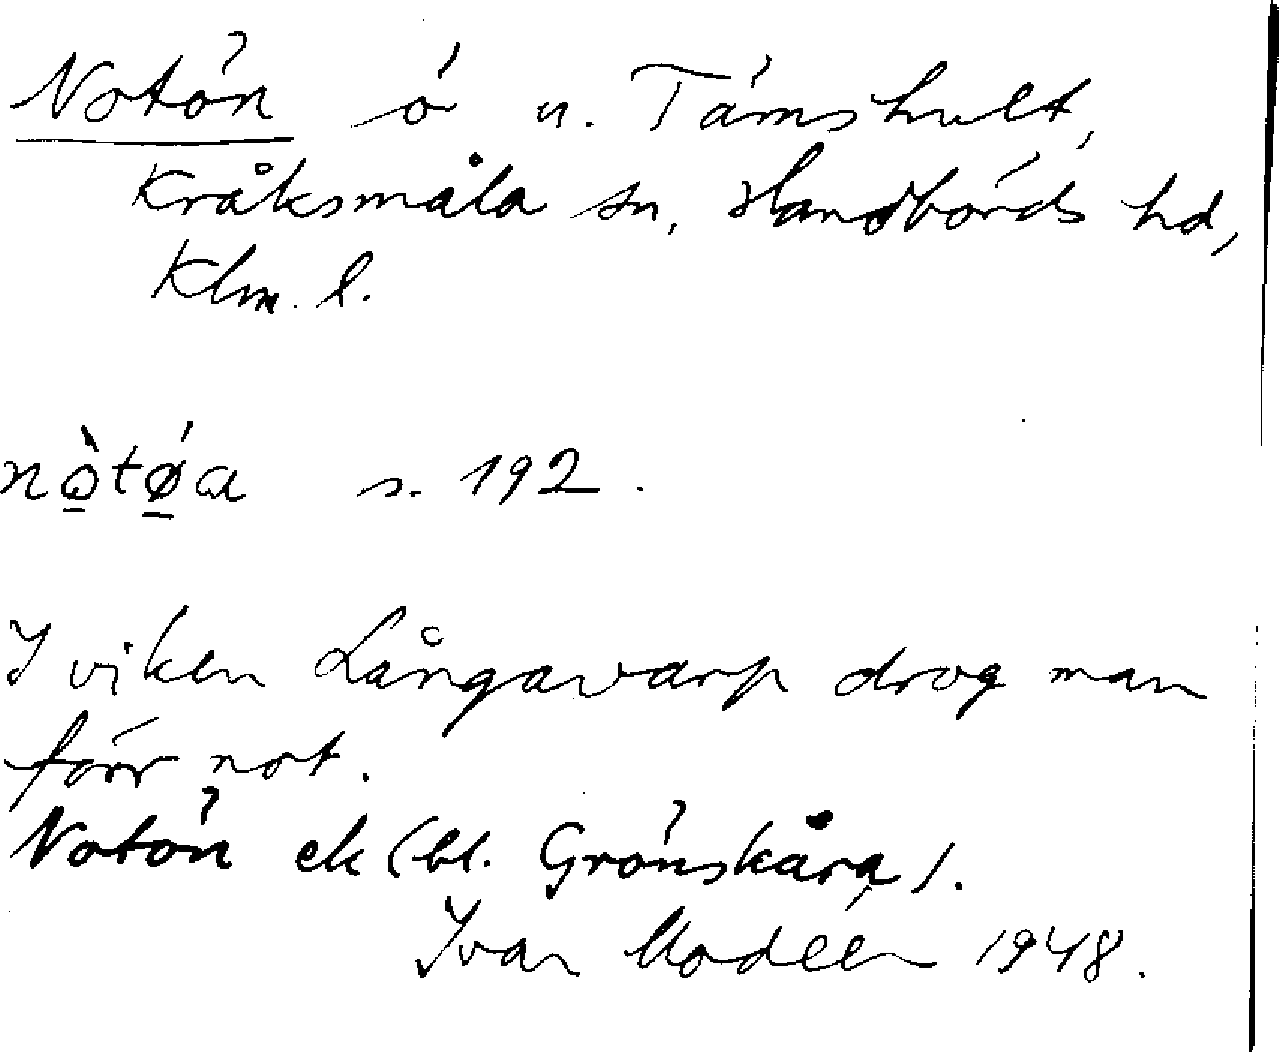 Notön ö u. Tämshult,
Kråksmåla sn, Handbörds hd,
Klm. l.
nòtǿa s. 192.
I viken Långavarp drog man
förr not.
Notön ek (bl. Grönskåra).
Ivar Modéer 1948.